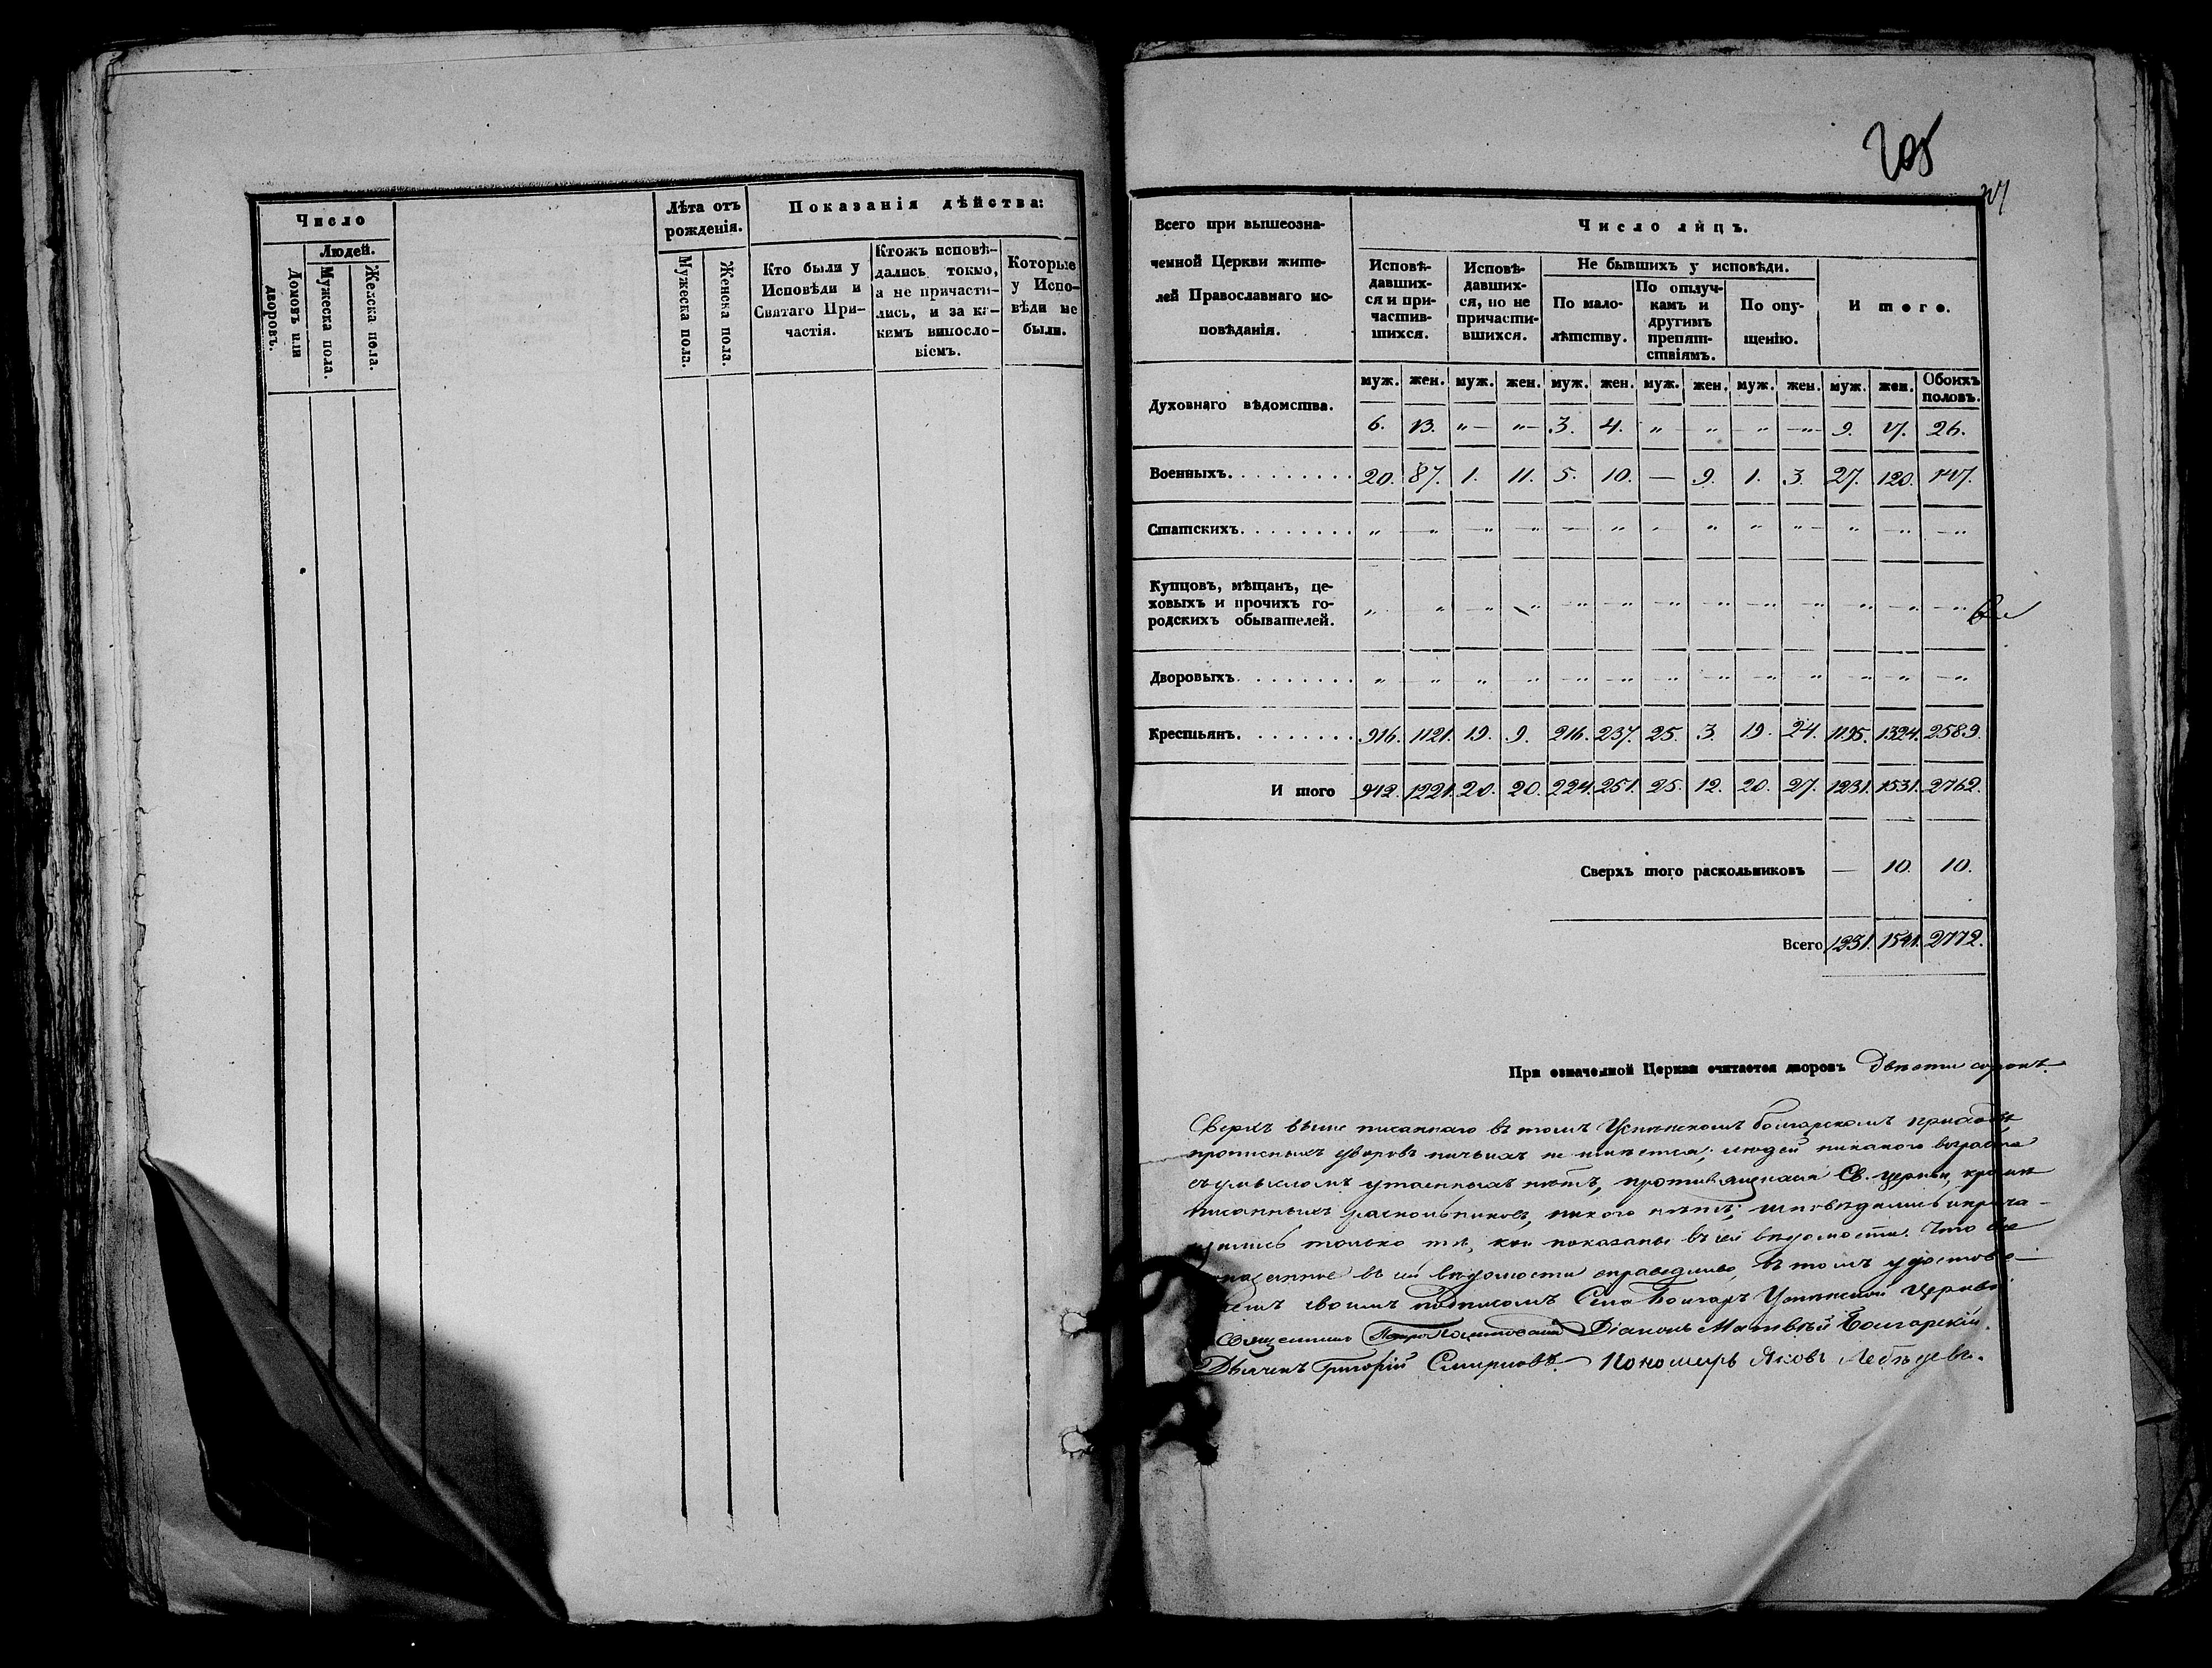 Число
Людей.
Домовъ или дворовъ.
Мужеска пола.
Женска пола.
Лѣта отъ
рожденія.
Мужеска пола.
Женска пола.
Показанія дѣйства:
Кто были у
Исповѣди и
Святаго При-
частія.
Ктожъ исповѣ-
дались токмо,
а не причасти-
лись, и за ка-
кимъ винosло-
віемъ.
Которые
у Испо-
вѣди не
были.
205
Всего при вышеозна-
ченной Церкви жите-
лей Православнаго ис-
повѣданія.
Число лицъ.
Исповѣ-
давших-
ся и при-
частив-
шихся.
Исповѣ-
давших-
ся, но не
причасти-
вшихся.
Не бывшихъ у исповѣди.
По мало-
лѣтству.
По отлуч-
камъ и
другимъ
препят-
ствіямъ.
По опу-
щенію.
И того.
муж. жен. муж. жен. муж. жен. муж. жен. муж. жен. муж. жен. Обоихъ половъ.
Духовнаго вѣдомства.
6. 13. „ „ 3. 4. „ „ „ „ 9. 17. 26.
Военныхъ. 20. 87. 1. 11. 5. 10. — 9. 1. 3. 27. 120. 147.
Статскихъ. „ „ „ „ „ „ „ „ „ „ „ „ „
Купцовъ, мѣщанъ, це-
ховыхъ и прочихъ го-
родскихъ обывателей. „ „ „ „ „ „ „ „ „ „ „ „ „
Дворовыхъ. „ „ „ „ „ „ „ „ „ „ „ „ „
Крестьянъ. 916. 1121. 19. 9. 216. 237. 25. 3. 19. 24. 1195. 1394. 2589.
И того 942. 1221. 20. 20. 224. 251. 25. 12. 20. 27. 1231. 1531. 2762.
Сверхъ того раскольниковъ — 10. 10.
Всего 1231. 1541. 2772.
При означенной Церкви считается дворовъ Двѣсти сорокъ
Сверхъ выше писаннаго въ томъ Успенскомъ Болгарскомъ приходѣ
прописныхъ дворовъ ничьихъ не имѣется; людей никакого возраста
съ умысломъ утаенныхъ нѣтъ, противящихся Св. Церкви, кромѣ
писанныхъ раскольниковъ, никого нѣтъ; исповѣдались и прича-
щались только тѣ, кои показаны въ сей вѣдомости. Что все
показанное въ сей вѣдомости справедливо, въ томъ удостовѣ-
ряемъ своимъ подписомъ Села Болгаръ Успенской Церкви
Священникъ Петръ Діаконъ Матвѣй Болгарскій.
Дьячекъ Григорій Смирновъ. Пономарь Яковъ Лебедевъ.